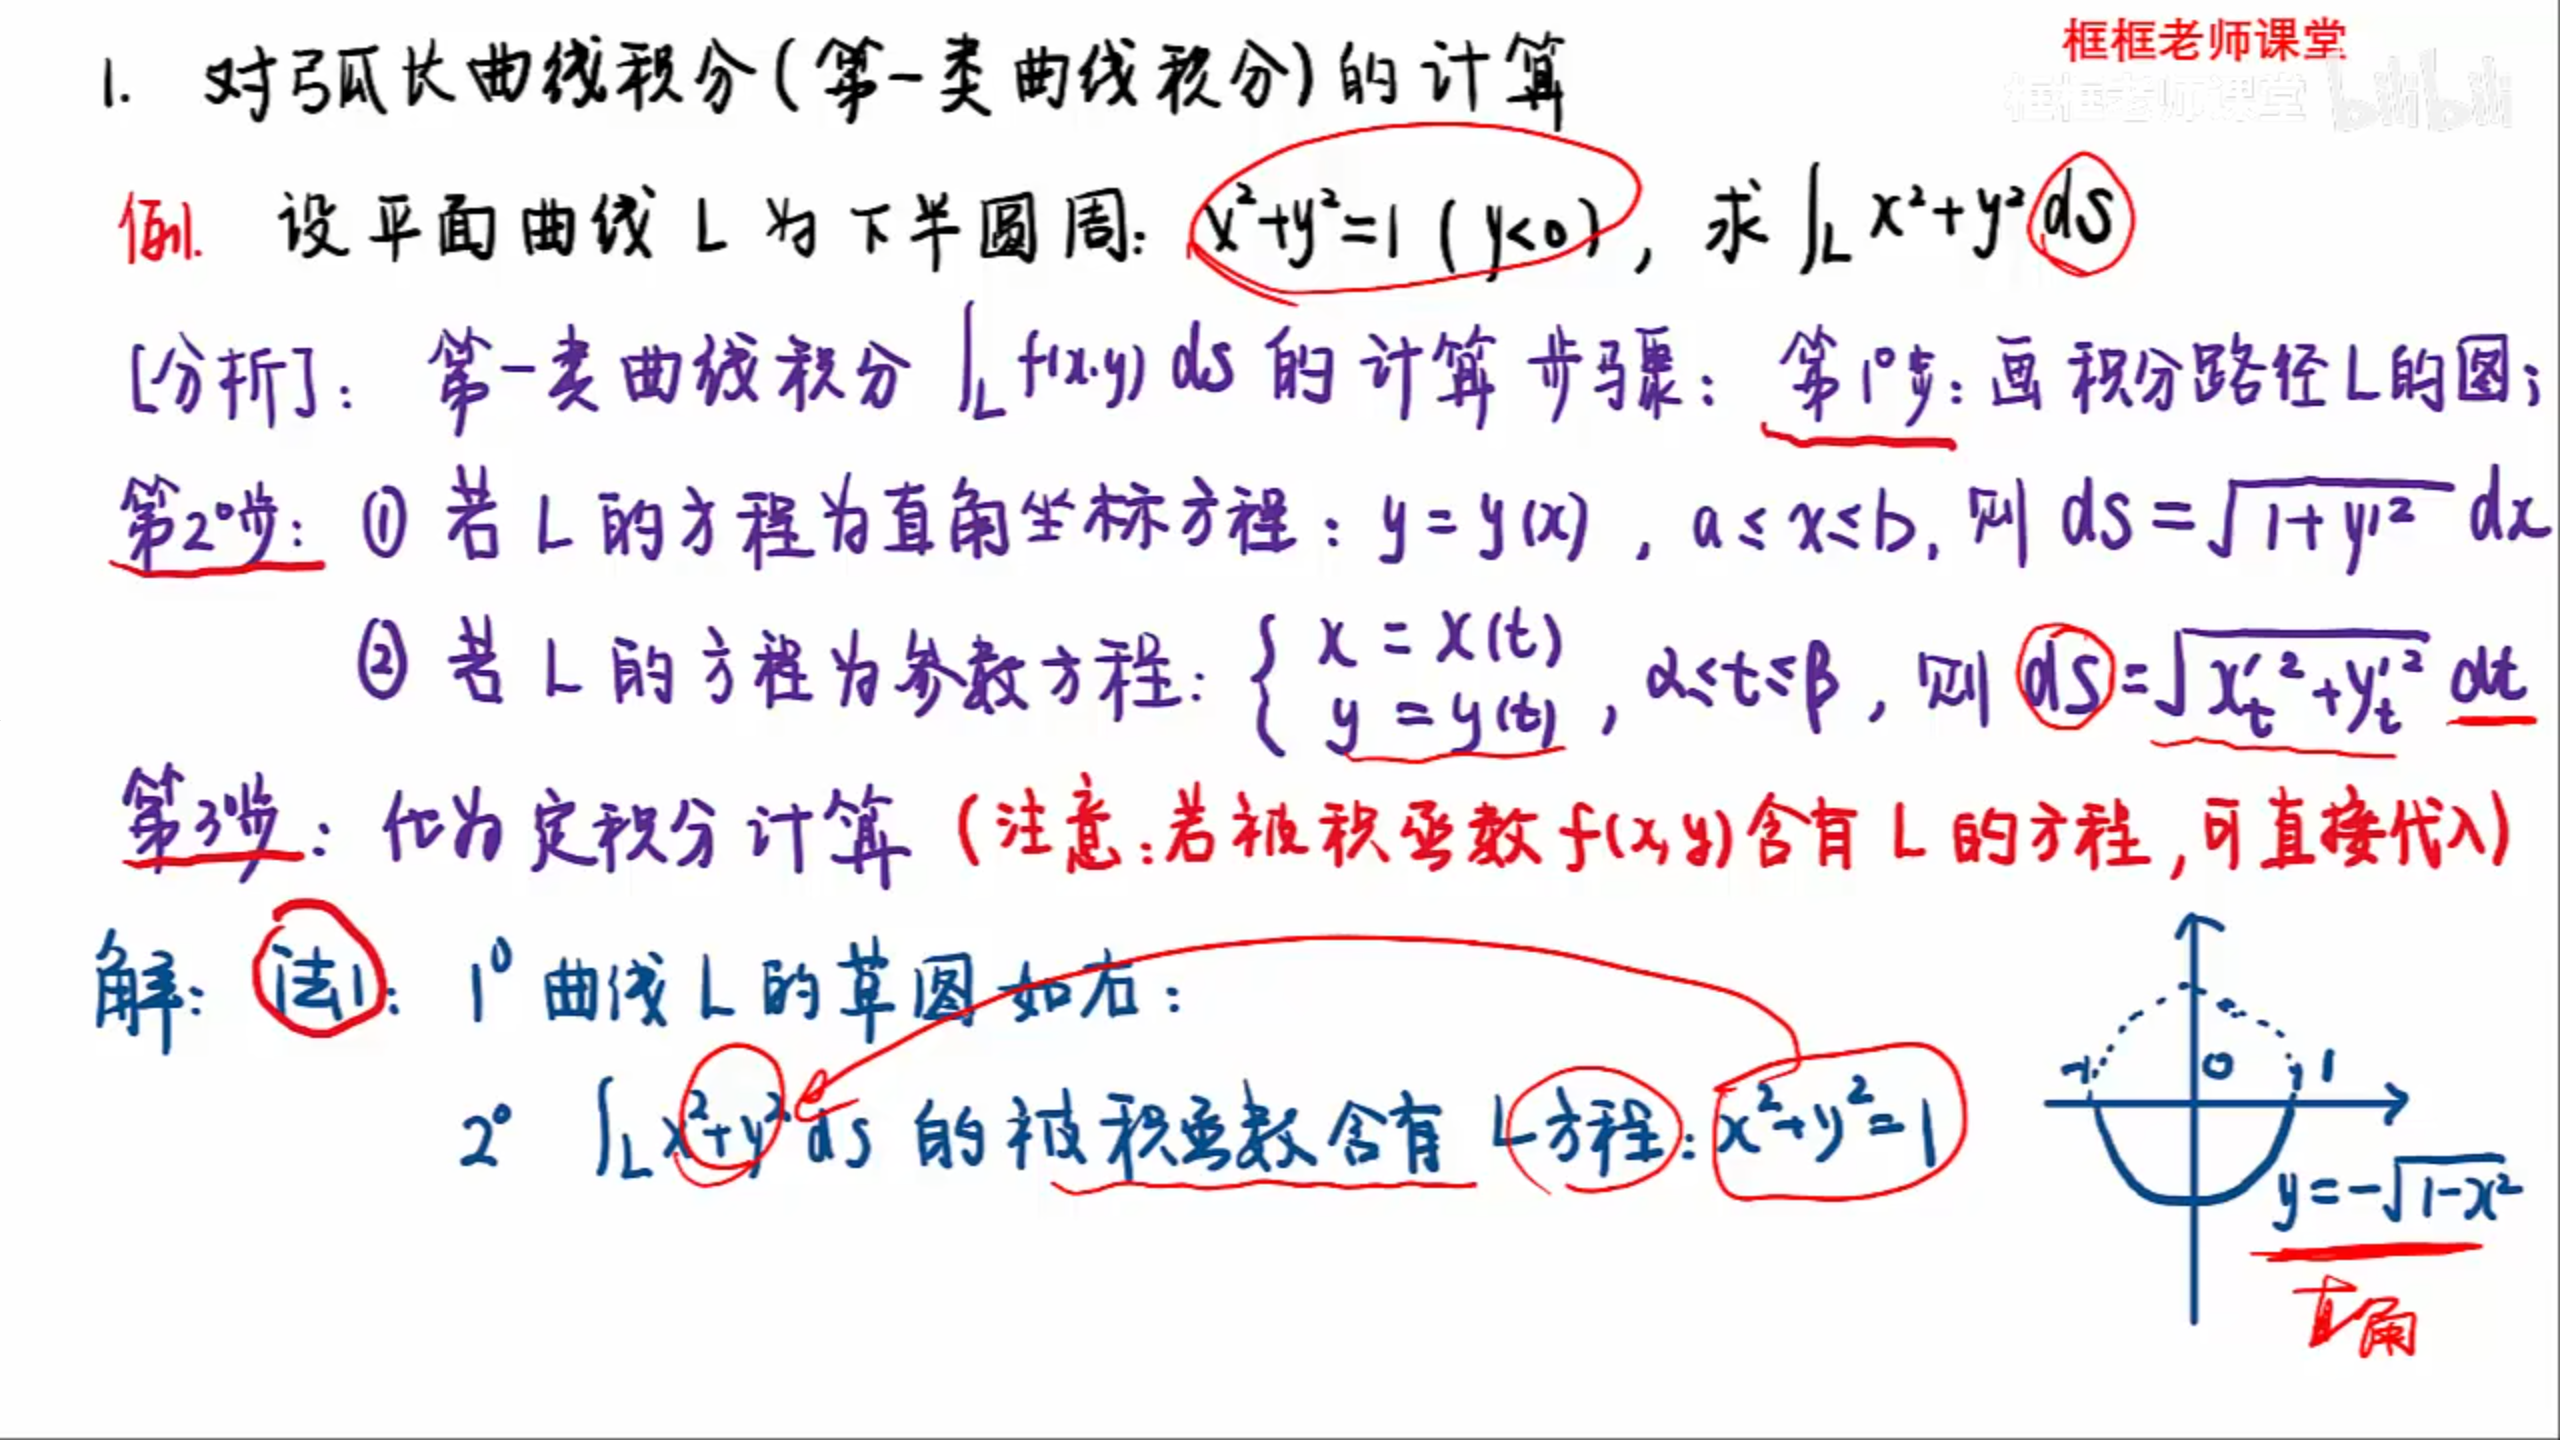 框框老师课堂
框框老师课堂 bilibili
1. 对弧长曲线积分(第一类曲线积分)的计算
例. 设平面曲线 L 为下半圆周: x²+y²=1 (y<0), 求 ∫_L x²+y² ds
[分析]: 第一类曲线积分 ∫_L f(x,y) ds 的计算步骤: 第1°步: 画积分路径L的图;
第2°步: ① 若 L 的方程为直角坐标方程: y=y(x), a≤x≤b, 则 ds=√(1+y'²) dx
② 若 L 的方程为参数方程: { x=x(t) y=y(t), α≤t≤β, 则 ds=√(x'_t²+y'_t²) dt
第3°步: 化为定积分计算 (注意:若被积函数f(x,y)含有 L 的方程,可直接代入)
解: 法1: 1° 曲线 L 的草图如右:
2° ∫_L x²+y² ds 的被积函数含有 L方程: x²+y²=1
-1 0 1
y=-√(1-x²)
直角